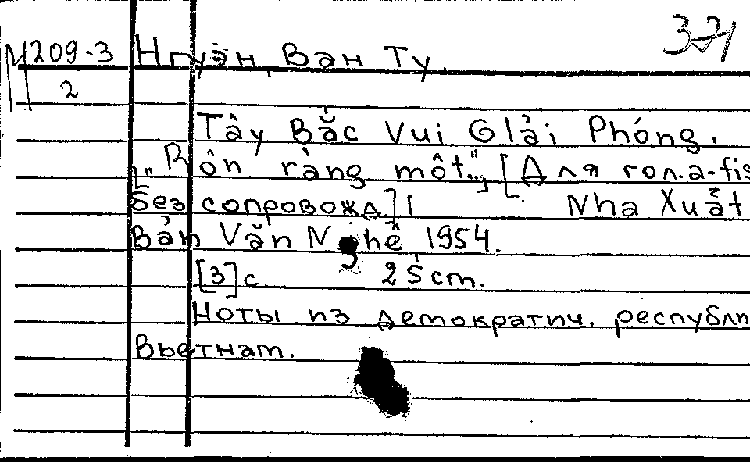 371
М209-3 Нгуэн, Ван Ту.
2
Tây Bắc Vui Giải Phóng.
[„Rộn ràng một.."] [Для гол. a-fis
без сопровожд.] Nha Xuất
Bản Văn Nghê 1954.
[3]с. 25 cm.
Ноты из демократич. республи
Вьетнам.